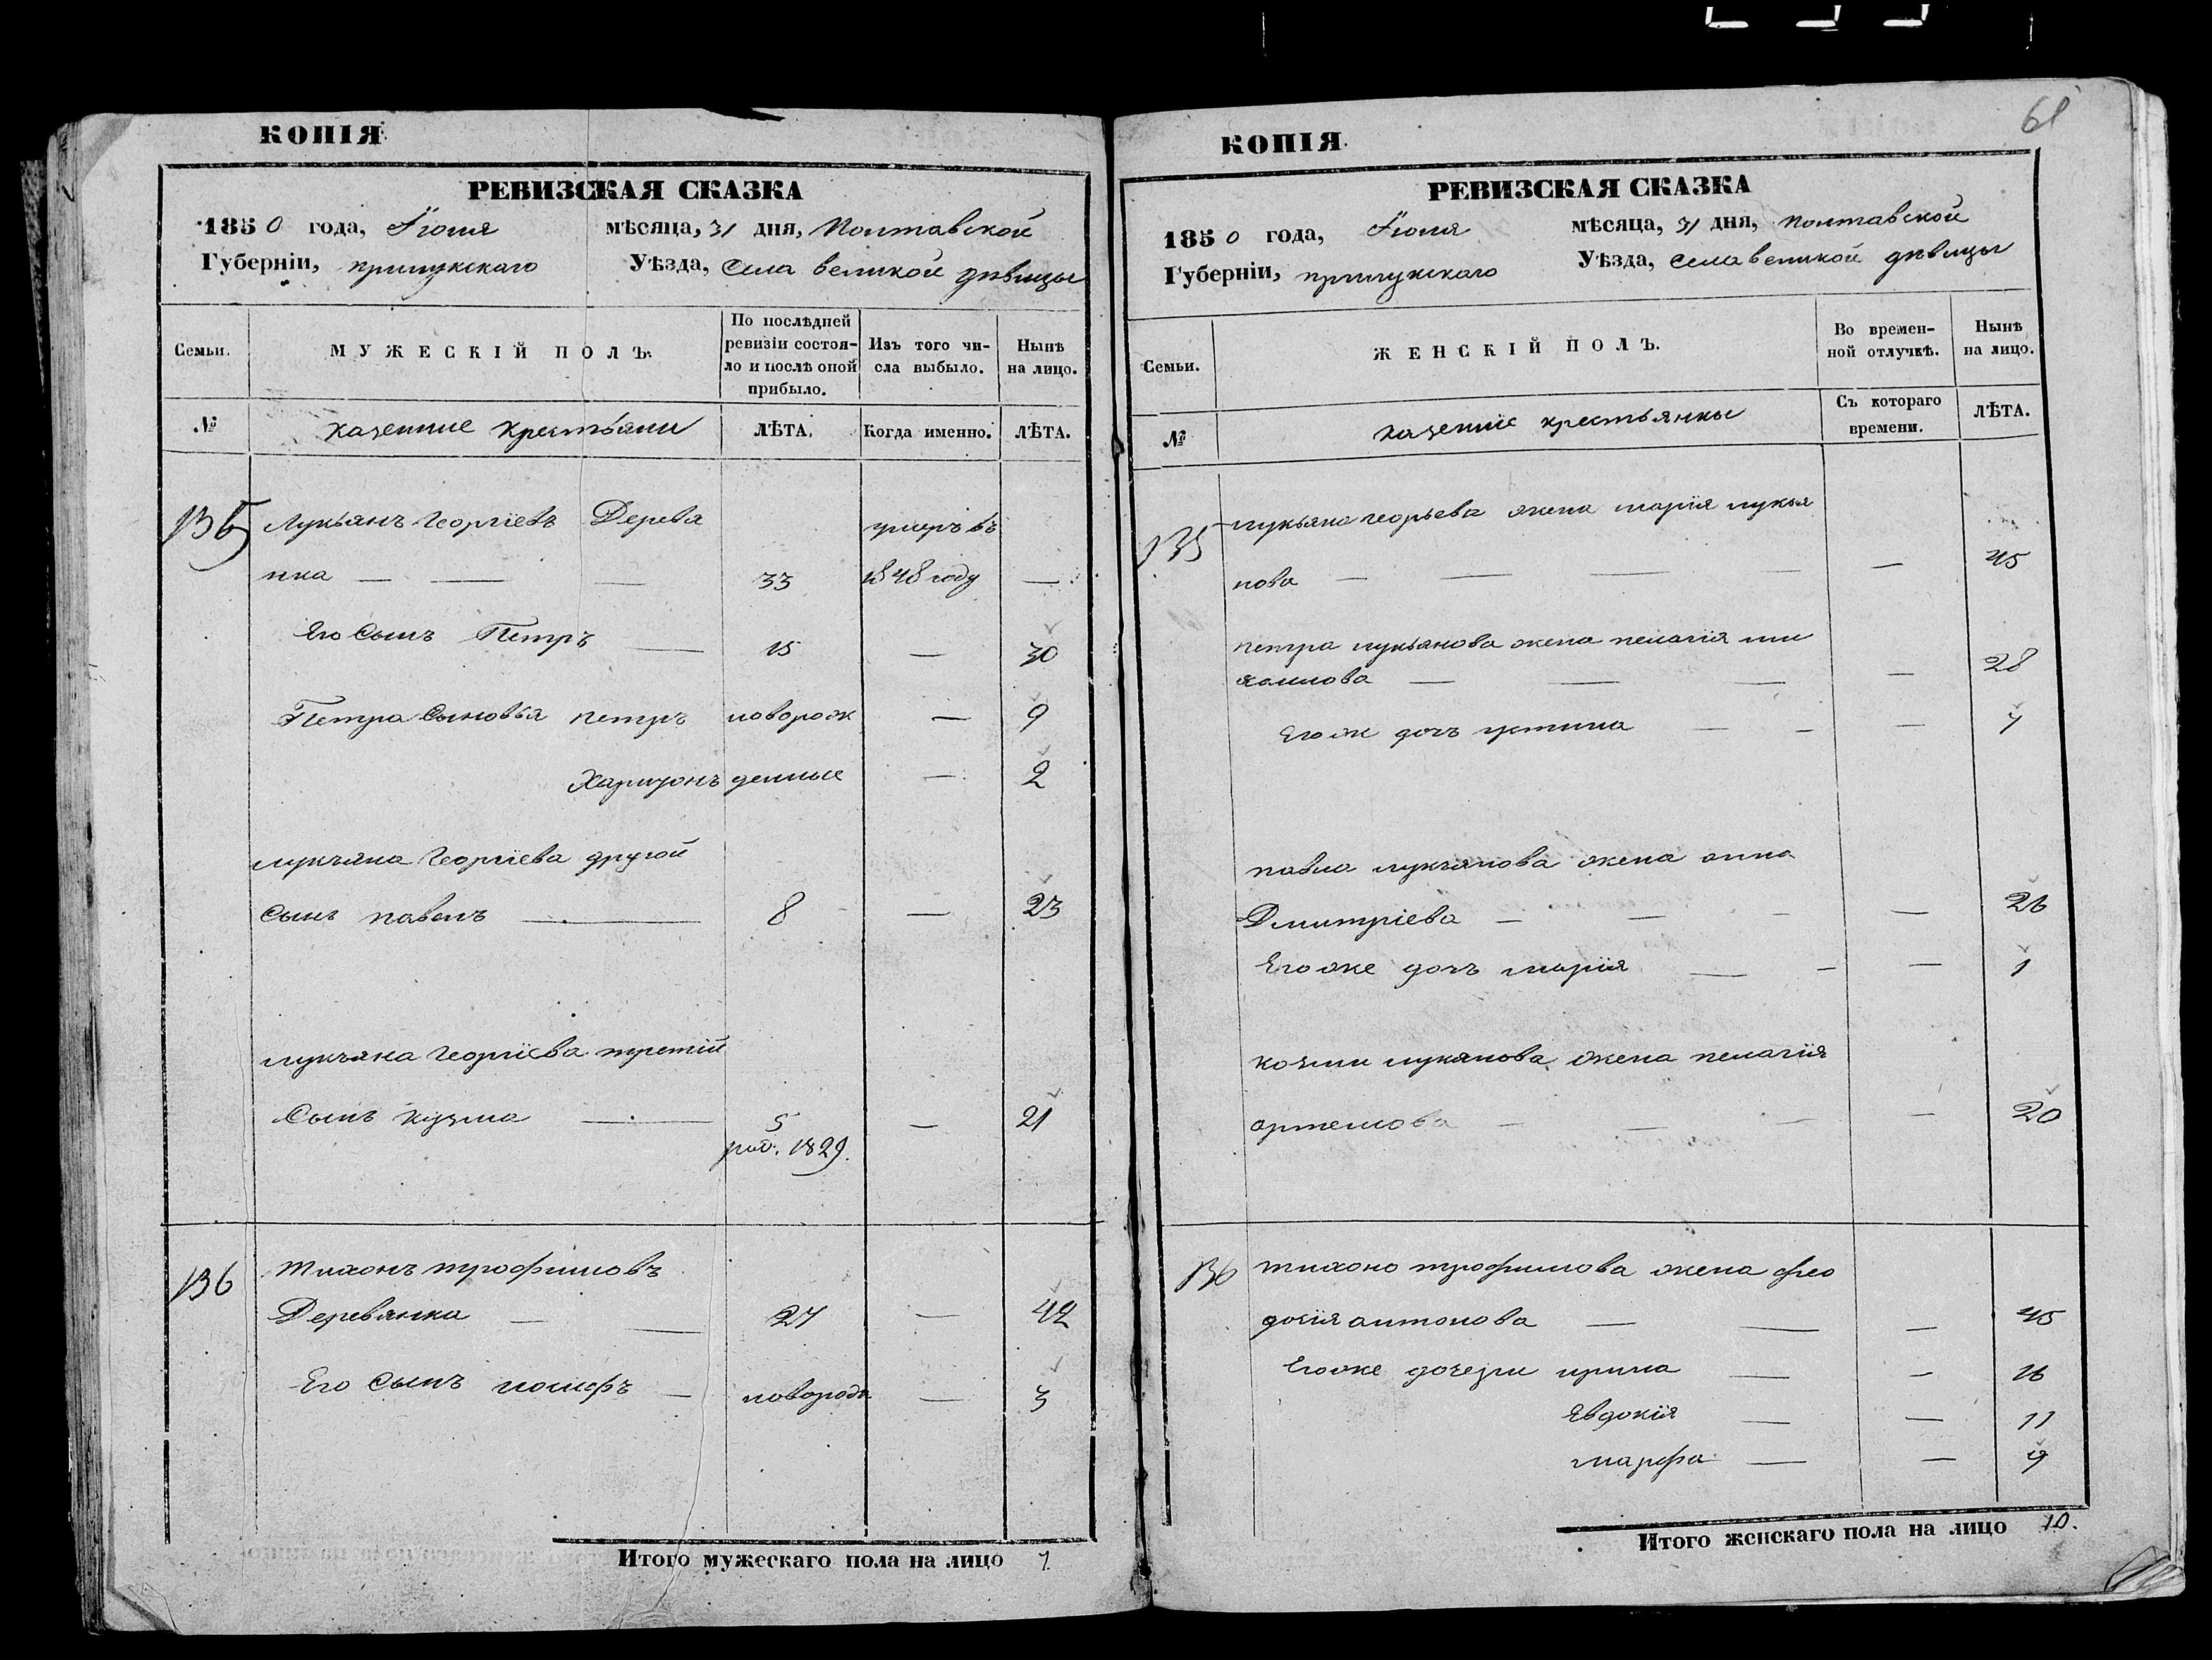 КОПІЯ.
РЕВИЗСКАЯ СКАЗКА
1850 года, Іюля мѣсяца, 31 дня, Полтавской
Губерніи, прилукскаго Уѣзда, села великой дѣвицы
Семьи.
МУЖЕСКІЙ ПОЛЪ.
По послѣдней ревизіи состоя-
ло и послѣ оной прибыло.
Изъ того чи-
сла выбыло.
Нынѣ
на лицо.
№ казенние крестьяни ЛѢТА. Когда именно. ЛѢТА.
135 Лукьянъ Георгіевъ Дерева умеръ въ
нка — — — 33 1848 году —
Его Сынъ Петръ — 15 — 30
Петра Сыновья петръ новорож — 9
Харитонъ денные — 2
лукъяна Георгіева другой
Сынъ павелъ — 8 — 23
лукъяна Георгіева третій
Сынъ кузма — 5 — 21
рид. 1829.
136 тихонъ трофимовъ
Деревянка — — 27 — 42
Его Сынъ иосифъ — новорож — 3
Итого мужескаго пола на лицо 7.
61
КОПІЯ.
РЕВИЗСКАЯ СКАЗКА
1850 года, Іюля мѣсяца, 31 дня, полтавской
Губерніи, прилукскаго Уѣзда, села великой дѣвицы
Семьи.
ЖЕНСКІЙ ПОЛЪ.
Во времен-
ной отлучкѣ.
Нынѣ
на лицо.
№ казенніе крестьянки
Съ котораго
времени.
ЛѢТА.
135 лукьяна георьева жена марія лукья
нова — — — — — 45
петра лукьянова жена пелагія
— — — — 28
Егож дочъ устина — — — 7
павла лукъянова жена анна
Дмитріева — — — — 26
Егоже дочъ марія — — — 1
козми лукянова жена пелагія
артемова — — — — 20
136 тихоно трофимова жена фео
досія антонова — — — 45
Егоже дочери ирина — — 16
Явдокія — — 11
марфа — — 9
Итого женскаго пола на лицо 10.